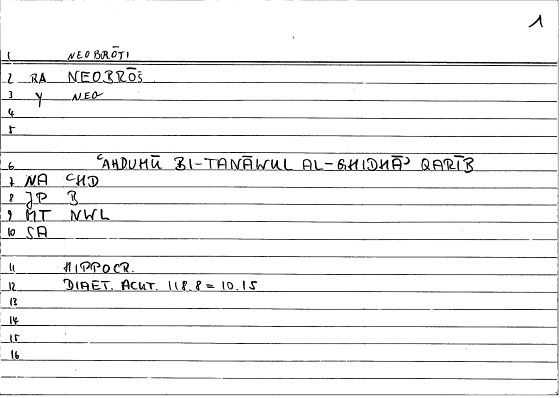 1
1 NEOBRŌTI
2 RA NEOBRŌS
3 Y NEO
4
5
6 ʿAHDUHŪ BI-TANĀWUL AL-GHIDHĀʾ QARĪB
7 NA ʿHD
8 JP B
9 MT NWL
10 SA
11 HIPPOCR.
12 DIAET. ACUT. 118.8 = 10.15
13
14
15
16